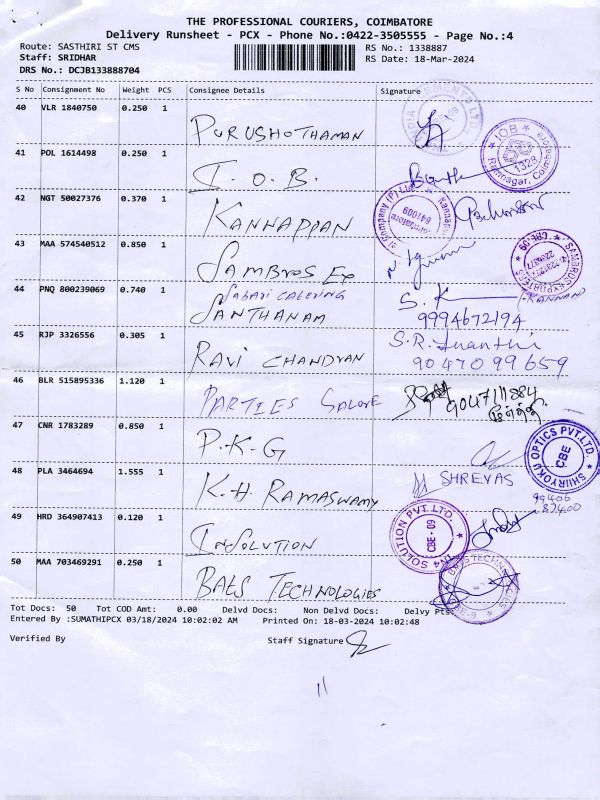 THE PROFESSIONAL COURIERS, COIMBATORE
Delivery Runsheet - PCX - Phone No.:0422-3505555 - Page No.:4
Route: SASTHIRI ST CMS RS No.: 1338887
Staff: SRIDHAR RS Date: 18-Mar-2024
DRS No.: DCJB133888704
S No Consignment No Weight PCS Consignee Details Signature
40 VLR 1840750 0.250 1
PURUSHOTHAMAN
41 POL 1614498 0.250 1
I.O.B.
IOB
1328
Ramnagar, Coimbatore
42 NGT 50027376 0.370 1
KANNAPPAN
641009
43 MAA 574540512 0.850 1
SAMBROS Ex
CBE.09
44 PNQ 800239069 0.740 1
SABARI CATERING
SANTHANAM
S.K
KANNAN
9994672194
45 RJP 3326556 0.305 1
RAVI CHANDRAN
S.R.
9047099659
46 BLR 515895336 1.120 1
PARTIES GALORE
9047111884
47 CNR 1783289 0.850 1
P.K.G
SHIRYOKU OPTICS PVT.LTD.
CBE
48 PLA 3464694 1.555 1
K.H. RAMASWAMY
SHREYAS
99406
87400
49 HRD 364907413 0.120 1
INSOLUTION
SOLUTION PVT.LTD.
CBE - 09
50 MAA 703469291 0.250 1
BATS TECHNOLOGIES
BATS TECHNOLOGIES
Tot Docs: 50 Tot COD Amt: 0.00 Delvd Docs: Non Delvd Docs: Delvy Pts:
Entered By :SUMATHIPCX 03/18/2024 10:02:02 AM Printed On: 18-03-2024 10:02:48
Verified By Staff Signature